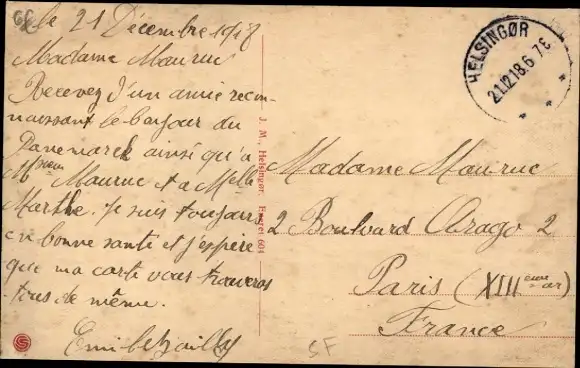 le 21 Décembre 1918
Madame Mauruc
Recevez d'un amie recon-
naissant le bonjour du
Danemark ainsi qu'a
Msieur Mauruc et a Melle
Marthe. Je suis toujours
en bonne santé et j'espère
que ma carte vous trouveras
tous de même.
J. M., Helsingør. Eneret 604
HELSINGØR
21.12.18. 6-7 E
Madame Mauruc
2 Boulevard Arago 2
Paris (XIIIeme ar)
France
SF